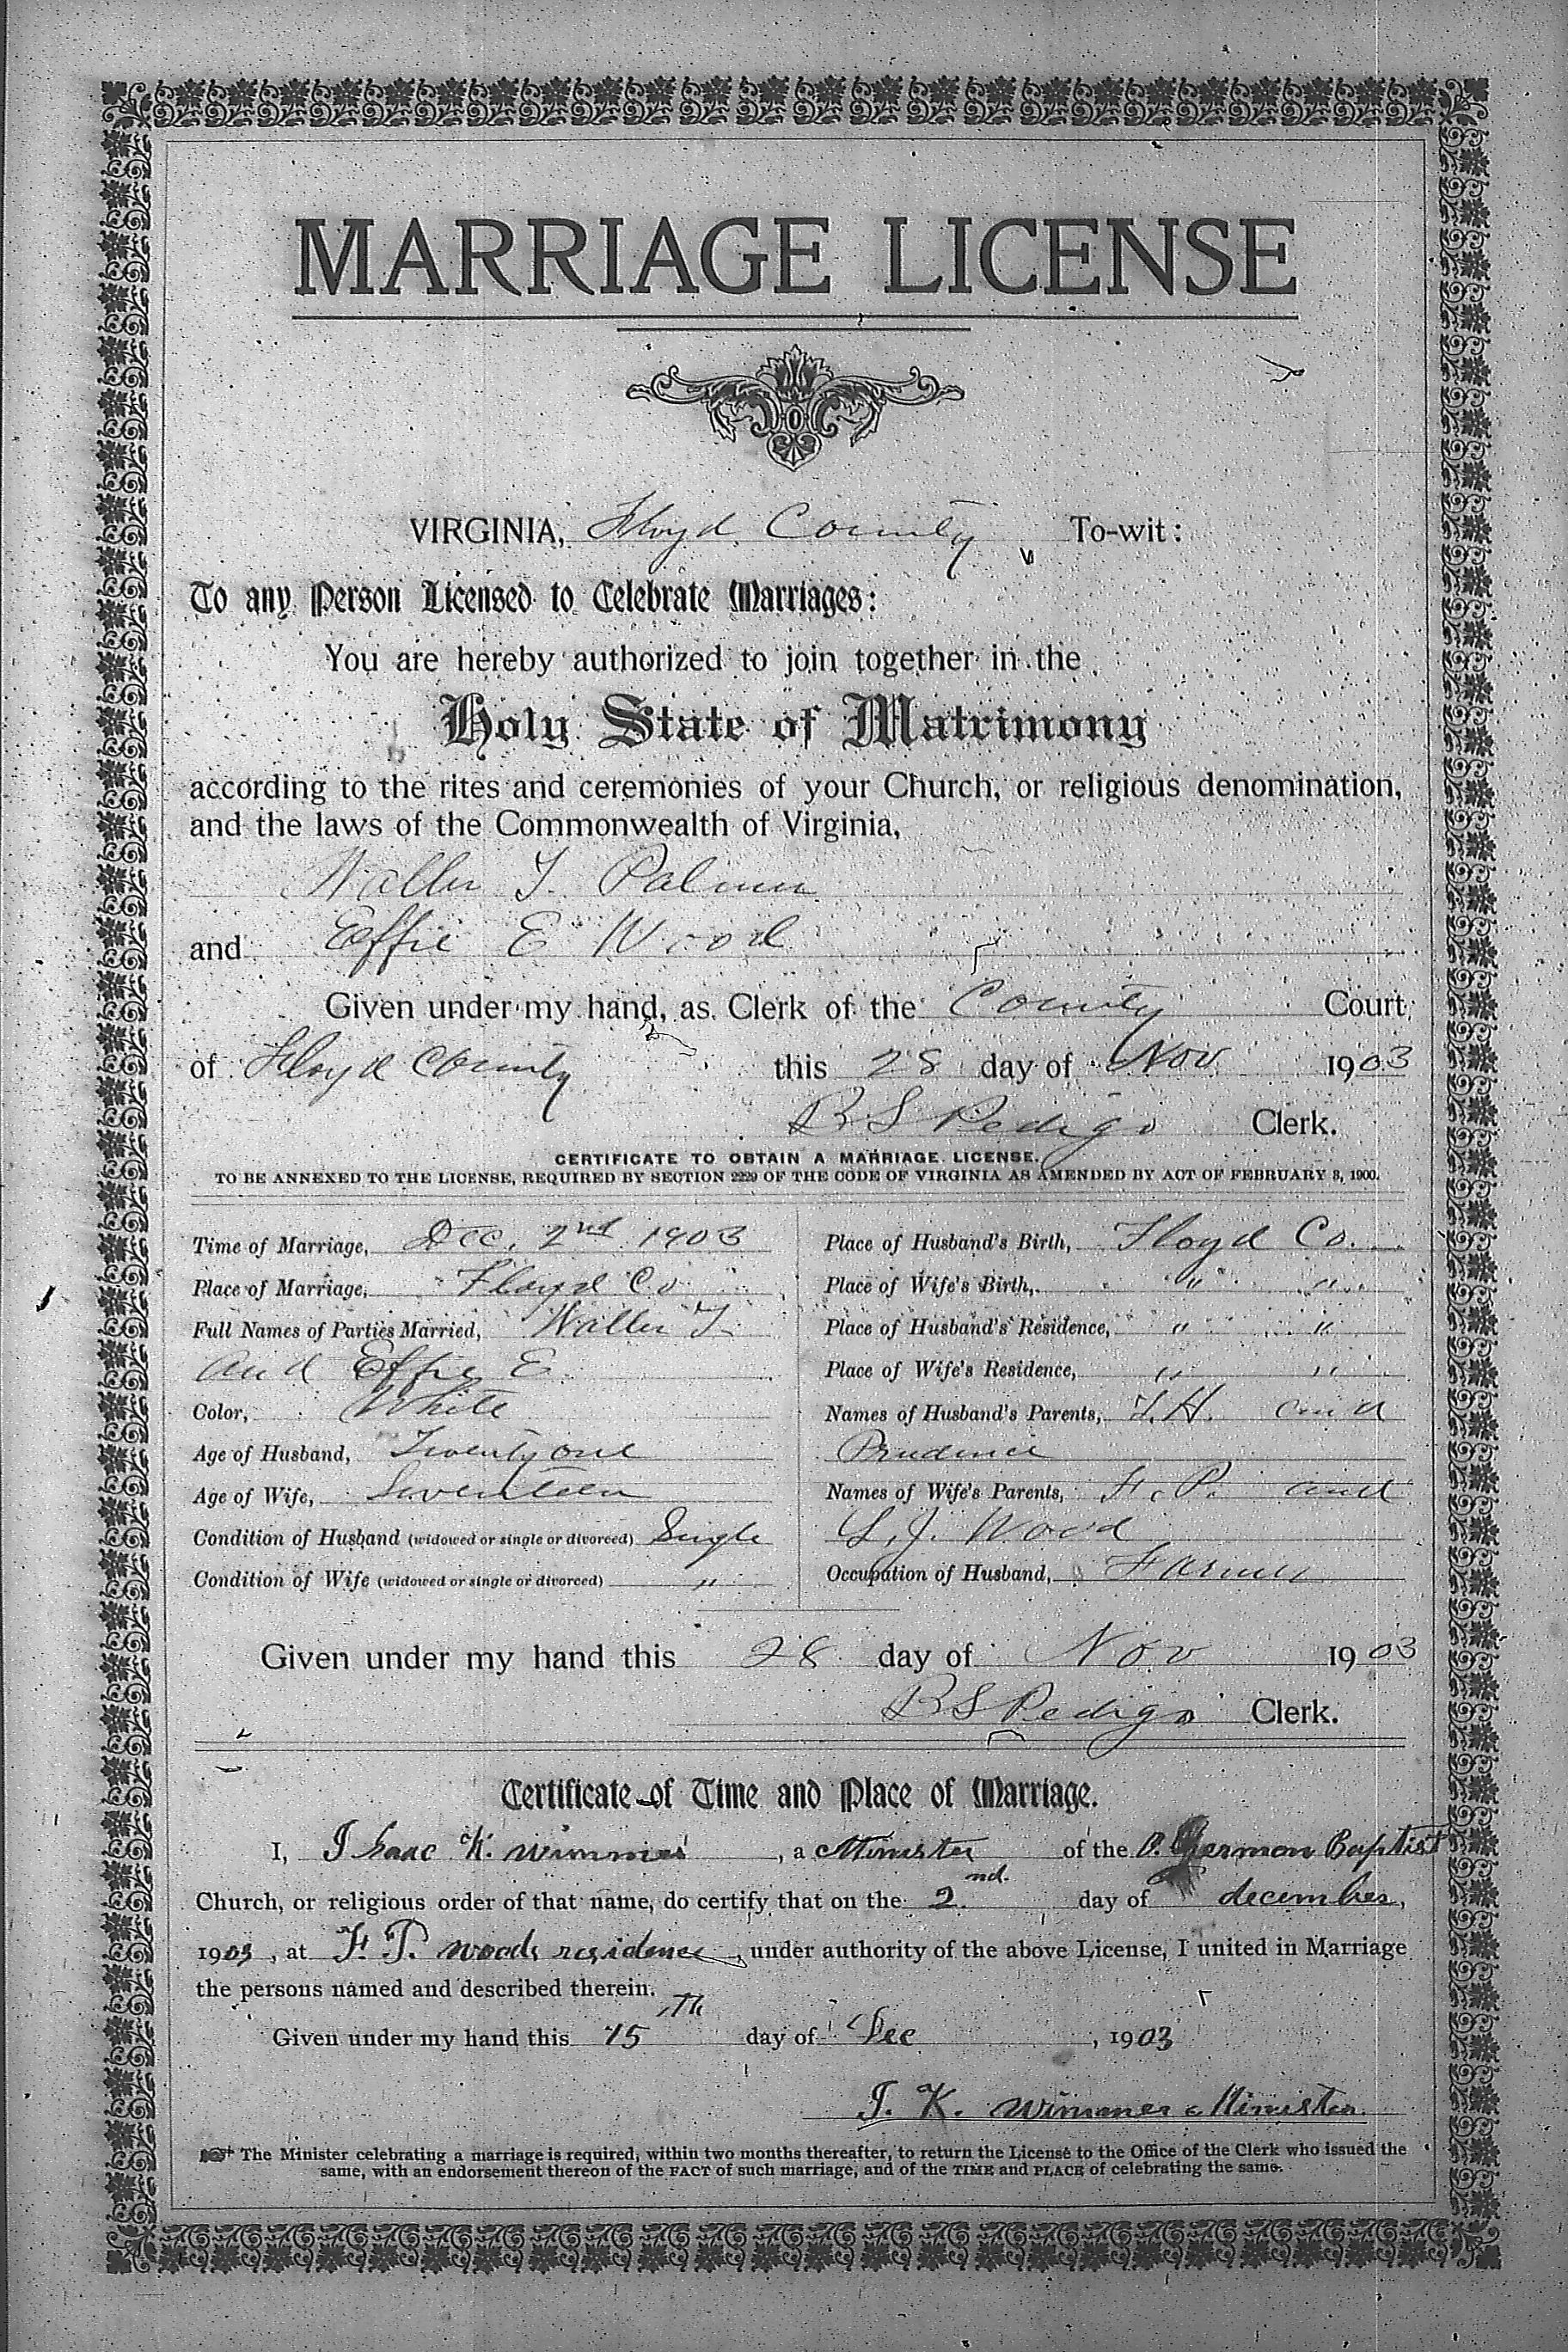 MARRIAGE LICENSE
VIRGINIA, Floyd County To-wit:
To any Person Licensed to Celebrate Marriages:
You are hereby authorized to join together in the
Holy State of Matrimony
according to the rites and ceremonies of your Church, or religious denomination,
and the laws of the Commonwealth of Virginia,
Waller T. Palmer
and Effie E Wood
Given under my hand, as Clerk of the County Court
of Floyd County this 28 day of Nov 1903
R S Pedigo Clerk.
CERTIFICATE TO OBTAIN A MARRIAGE LICENSE.
TO BE ANNEXED TO THE LICENSE, REQUIRED BY SECTION 2229 OF THE CODE OF VIRGINIA AS AMENDED BY ACT OF FEBRUARY 3, 1900.
Time of Marriage, Dec. 2nd 1903
Place of Marriage, Floyd Co
Full Names of Parties Married, Waller T.
and Effie E.
Color, White
Age of Husband, Twenty one
Age of Wife, Seventeen
Condition of Husband (widowed or single or divorced) Single
Condition of Wife (widowed or single or divorced) "
Place of Husband's Birth, Floyd Co.
Place of Wife's Birth, " "
Place of Husband's Residence, " "
Place of Wife's Residence, " "
Names of Husband's Parents, T. H. and
Prudence
Names of Wife's Parents, F. P. and
L. J. Wood
Occupation of Husband, Farmer
Given under my hand this 28 day of Nov 1903
R S Pedigo Clerk.
Certificate of Time and Place of Marriage.
I, Isaac K. Wimmer, a Minister of the O. German Baptist
Church, or religious order of that name, do certify that on the 2nd. day of december,
1903, at F. P. woods residence, under authority of the above License, I united in Marriage
the persons named and described therein.
Given under my hand this 15th day of Dec, 1903
I. K. Wimmer Minister
☞ The Minister celebrating a marriage is required, within two months thereafter, to return the License to the Office of the Clerk who issued the
same, with an endorsement thereon of the FACT of such marriage, and of the TIME and PLACE of celebrating the same.